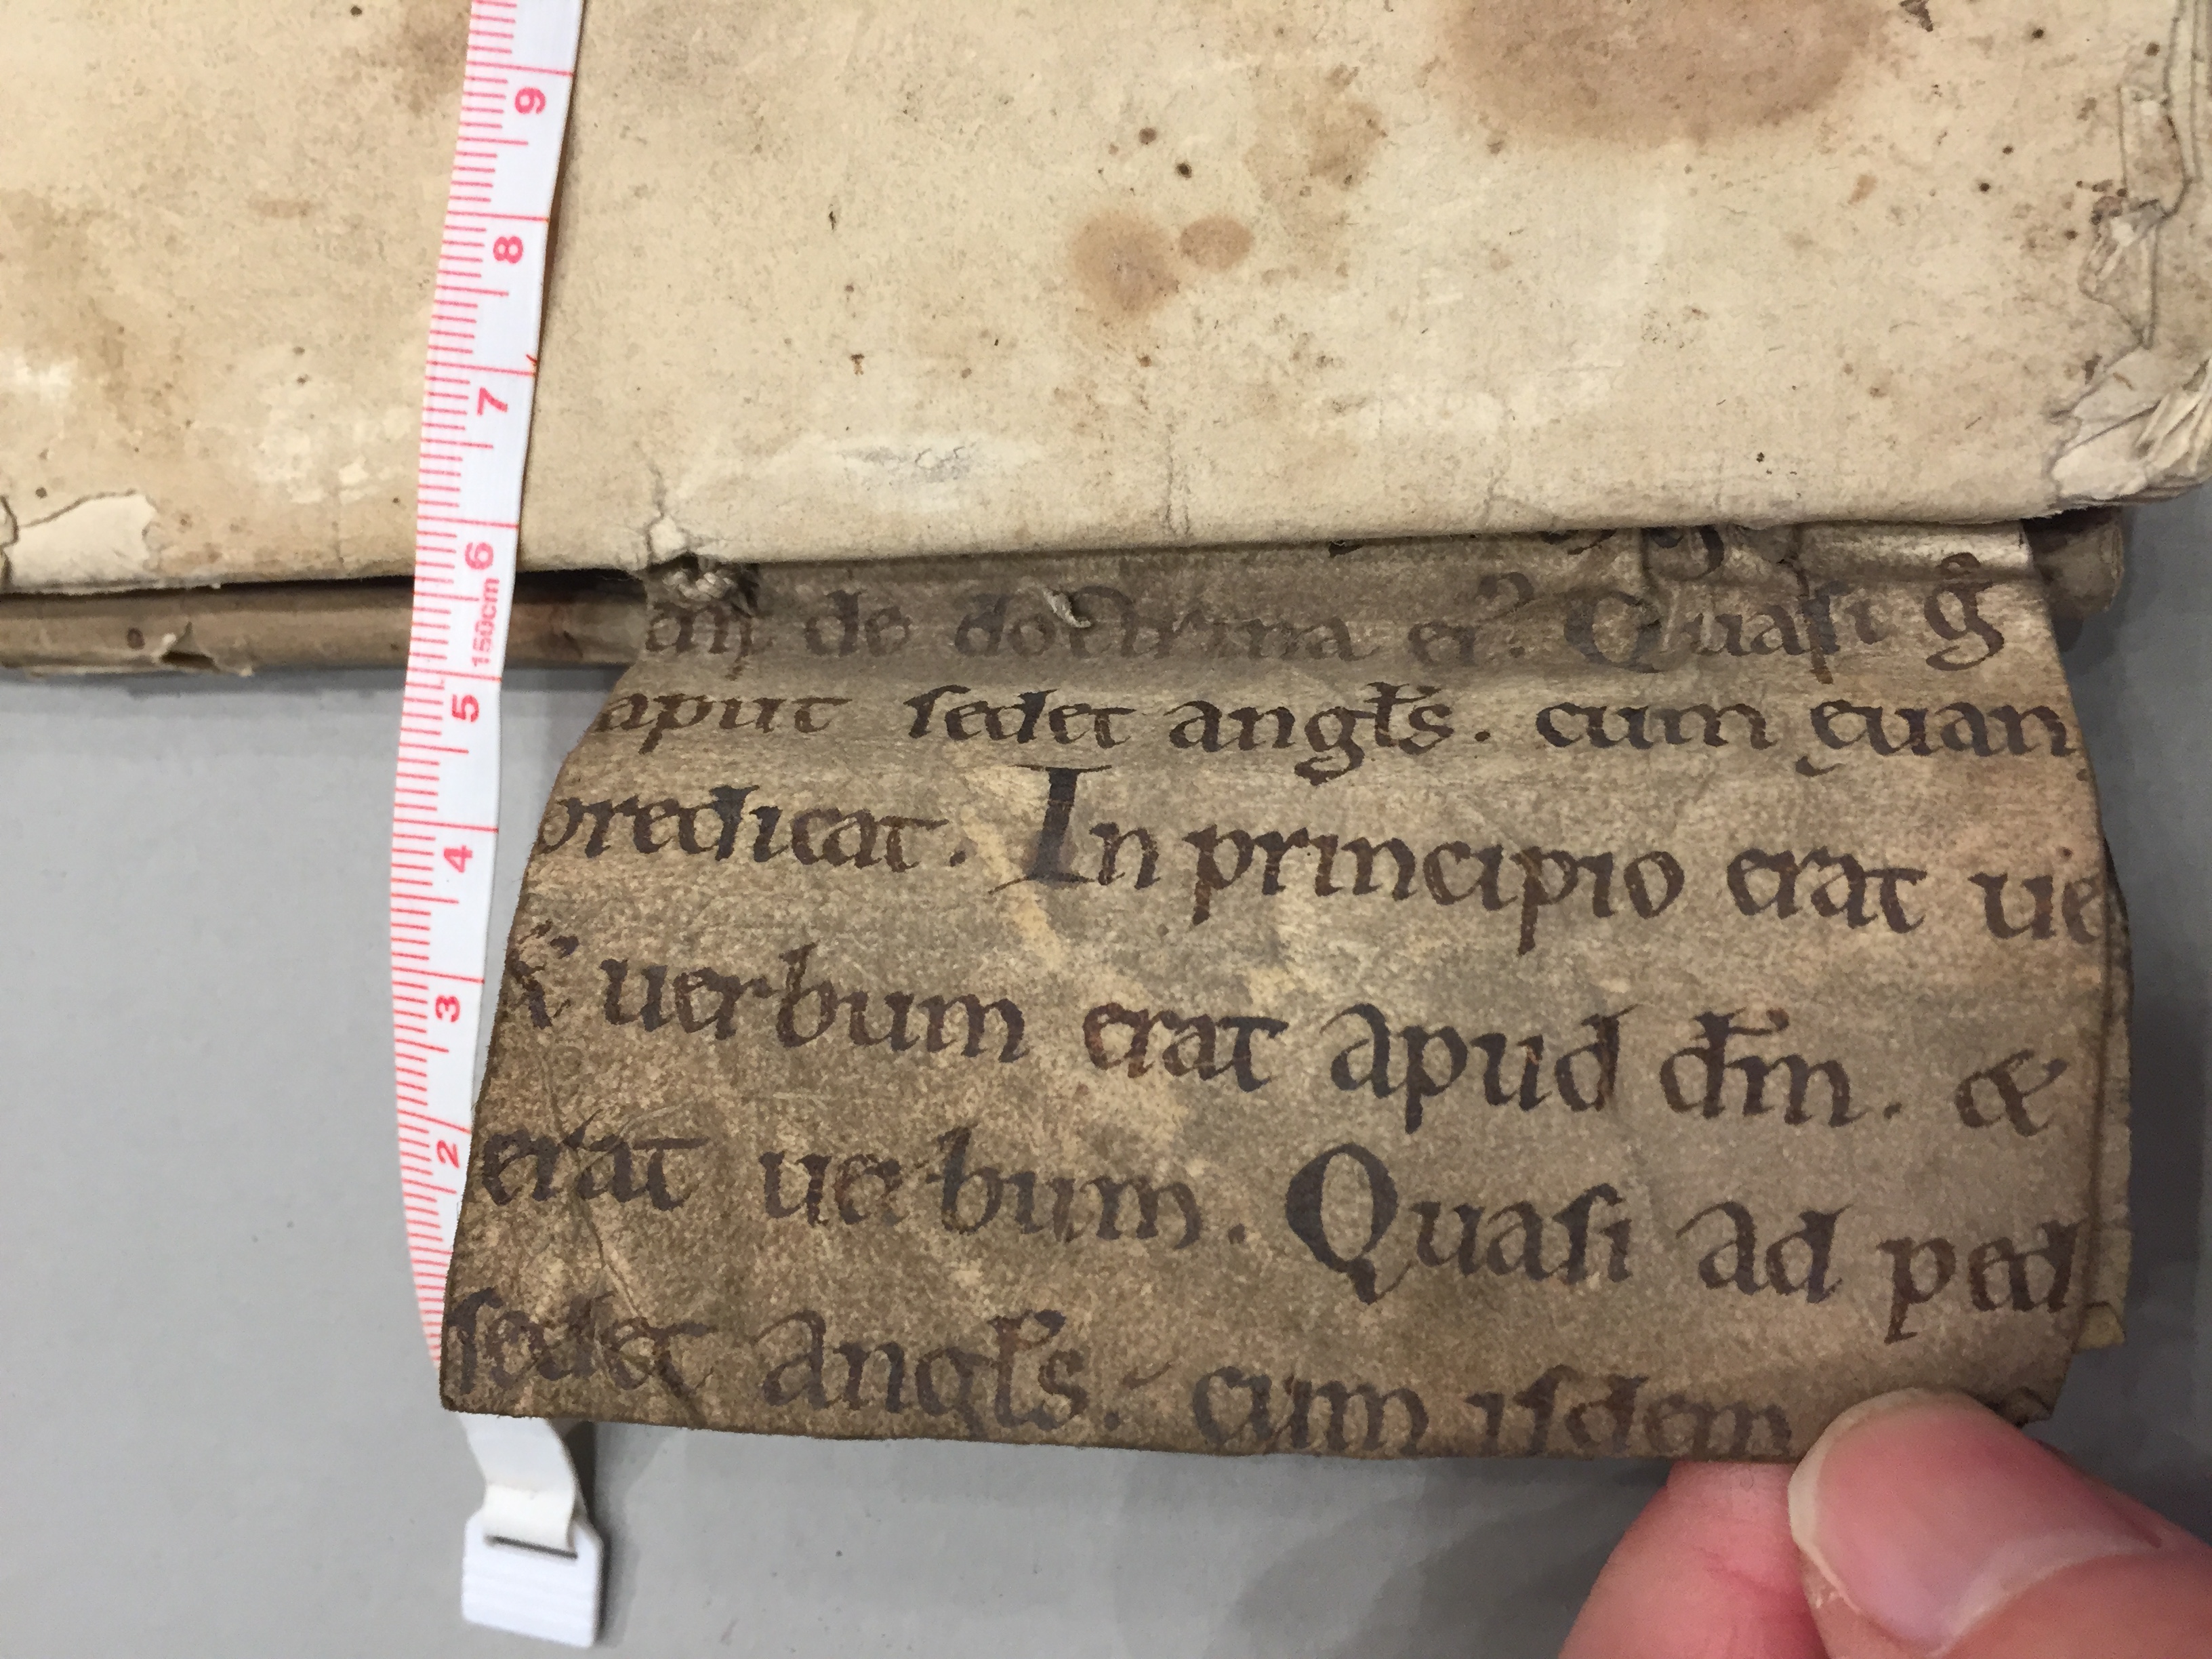 9
8
7
6
150cm
5
4
3
2
de doctrina ei? Quasi g̃
aput sedet angl̃s. cum ęuan
predicat. In principio erat ue
& uerbum erat apud dm̃. &
erat uerbum. Quasi ad ped
sedet angl̃s. cum isdem